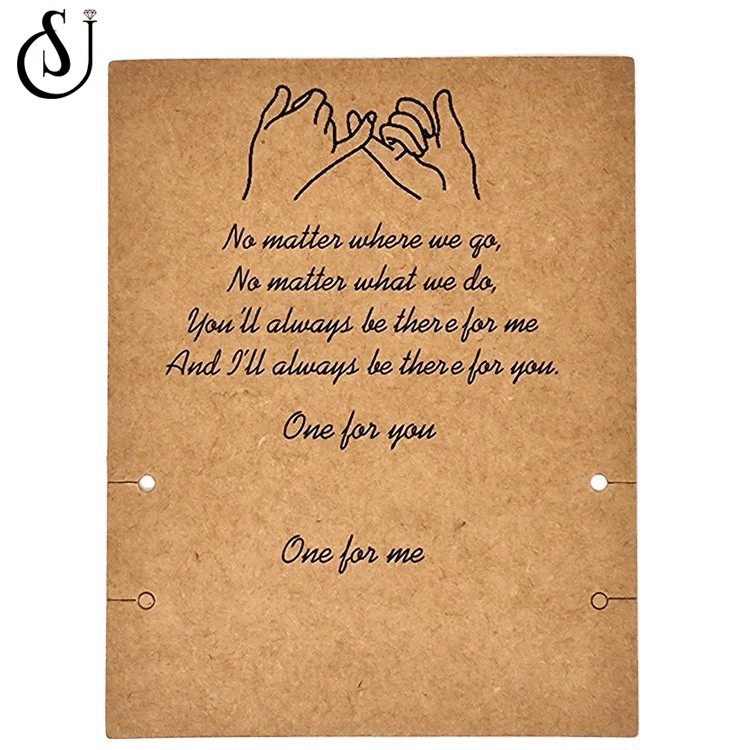 SJ
No matter where we go,
No matter what we do,
You'll always be there for me
And I'll always be there for you.
One for you
One for me